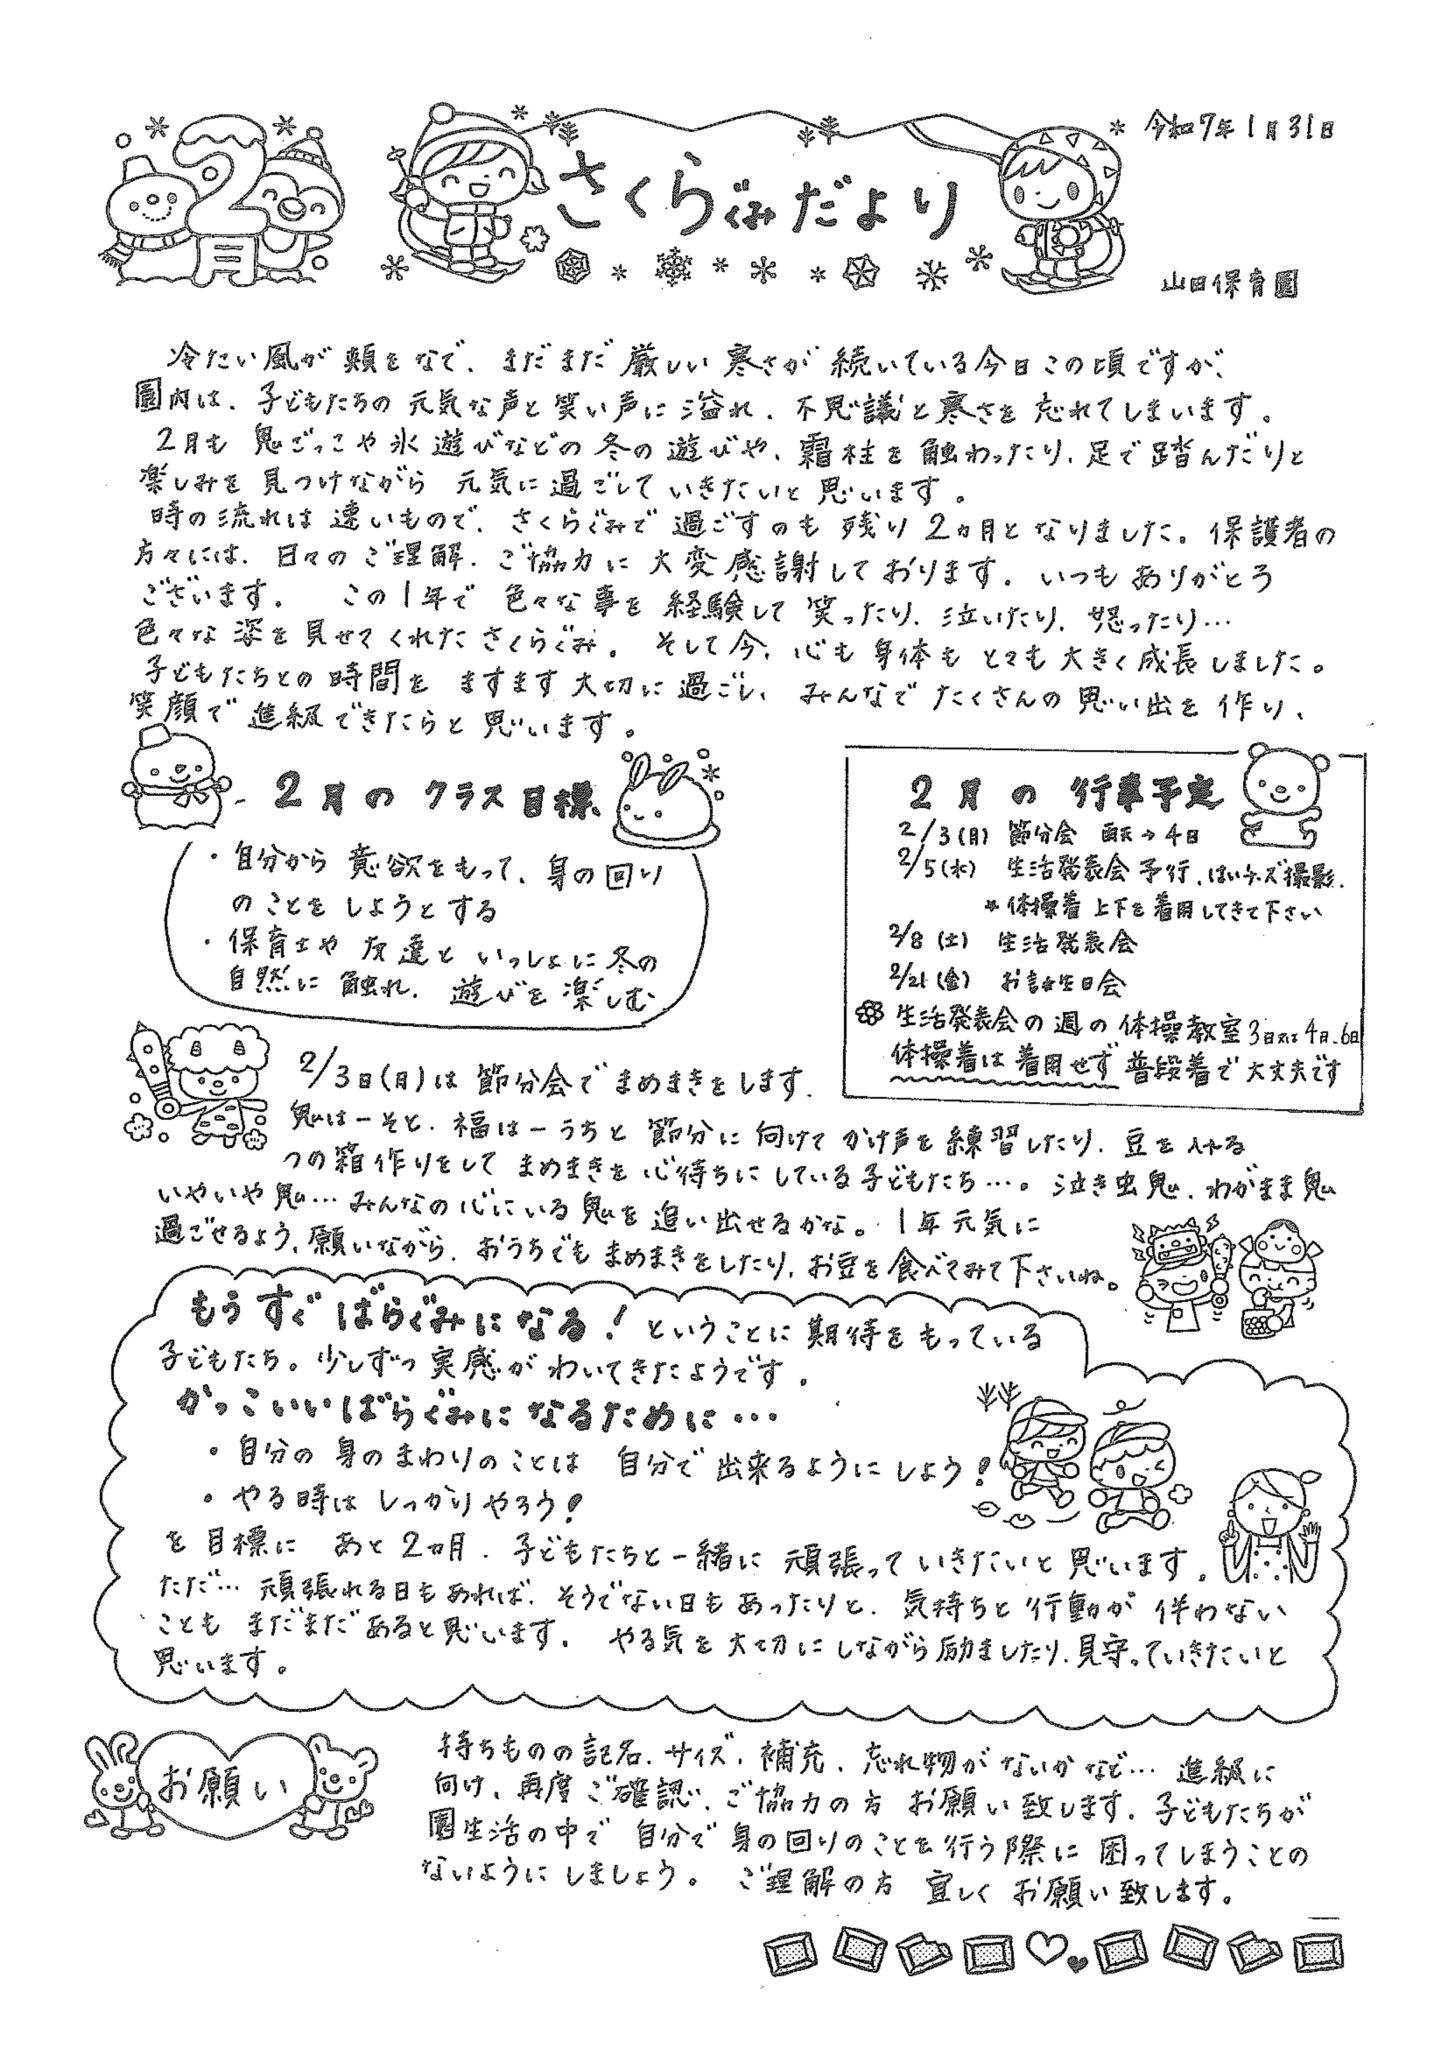 2月
さくらぐみだより
令和7年1月31日
山田保育園
冷たい風が頬をなで、まだまだ厳しい寒さが続いている今日この頃ですが、
園内は、子どもたちの元気な声と笑い声に溢れ、不思議と寒さを忘れてしまいます。
2月も鬼ごっこや氷遊びなどの冬の遊びや、霜柱を触わったり、足で踏んだりと
楽しみを見つけながら元気に過ごしていきたいと思います。
時の流れは速いもので、さくらぐみで過ごすのも残り2ヵ月となりました。保護者の
方々には、日々のご理解、ご協力に大変感謝しております。いつもありがとう
ございます。 この1年で色々な事を経験して笑ったり、泣いたり、怒ったり…
色々な姿を見せてくれたさくらぐみ。そして今、心も身体もとても大きく成長しました。
子どもたちとの時間をますます大切に過ごし、みんなでたくさんの思い出を作り、
笑顔で進級できたらと思います。
2月のクラス目標
・自分から意欲をもって、身の回り
のことをしようとする
・保育士や友達といっしょに冬の
自然に触れ、遊びを楽しむ
2月の行事予定
2/3(月) 節分会 雨天→4日
2/5(水) 生活発表会予行、はいチーズ撮影、
*体操着上下を着用してきて下さい
2/8(土) 生活発表会
2/21(金) お誕生日会
生活発表会の週の体操教室3日又は4日、6日
体操着は着用せず普段着で大丈夫です
2/3日(月)は節分会でまめまきをします。
鬼はーそと、福はーうちと節分に向けてかけ声を練習したり、豆を入れる
つの箱作りをしてまめまきを心待ちにしている子どもたち…。泣き虫鬼、わがまま鬼
いやいや鬼…みんなの心にいる鬼を追い出せるかな。1年元気に
過ごせるよう、願いながら、おうちでもまめまきをしたり、お豆を食べてみて下さいね。
もうすぐばらぐみになる!ということに期待をもっている
子どもたち。少しずつ実感がわいてきたようです。
かっこいいばらぐみになるために…
・自分の身のまわりのことは自分で出来るようにしよう!
・やる時はしっかりやろう!
を目標にあと2ヵ月、子どもたちと一緒に頑張っていきたいと思います。
ただ…頑張れる日もあれば、そうでない日もあったりと、気持ちと行動が伴わない
こともまだまだあると思います。やる気を大切にしながら励ましたり、見守っていきたいと
思います。
お願い
持ちものの記名、サイズ、補充、忘れ物がないかなど…進級に
向け、再度ご確認、ご協力の方お願い致します。子どもたちが
園生活の中で自分で身の回りのことを行う際に困ってしまうことの
ないようにしましょう。ご理解の方宜しくお願い致します。